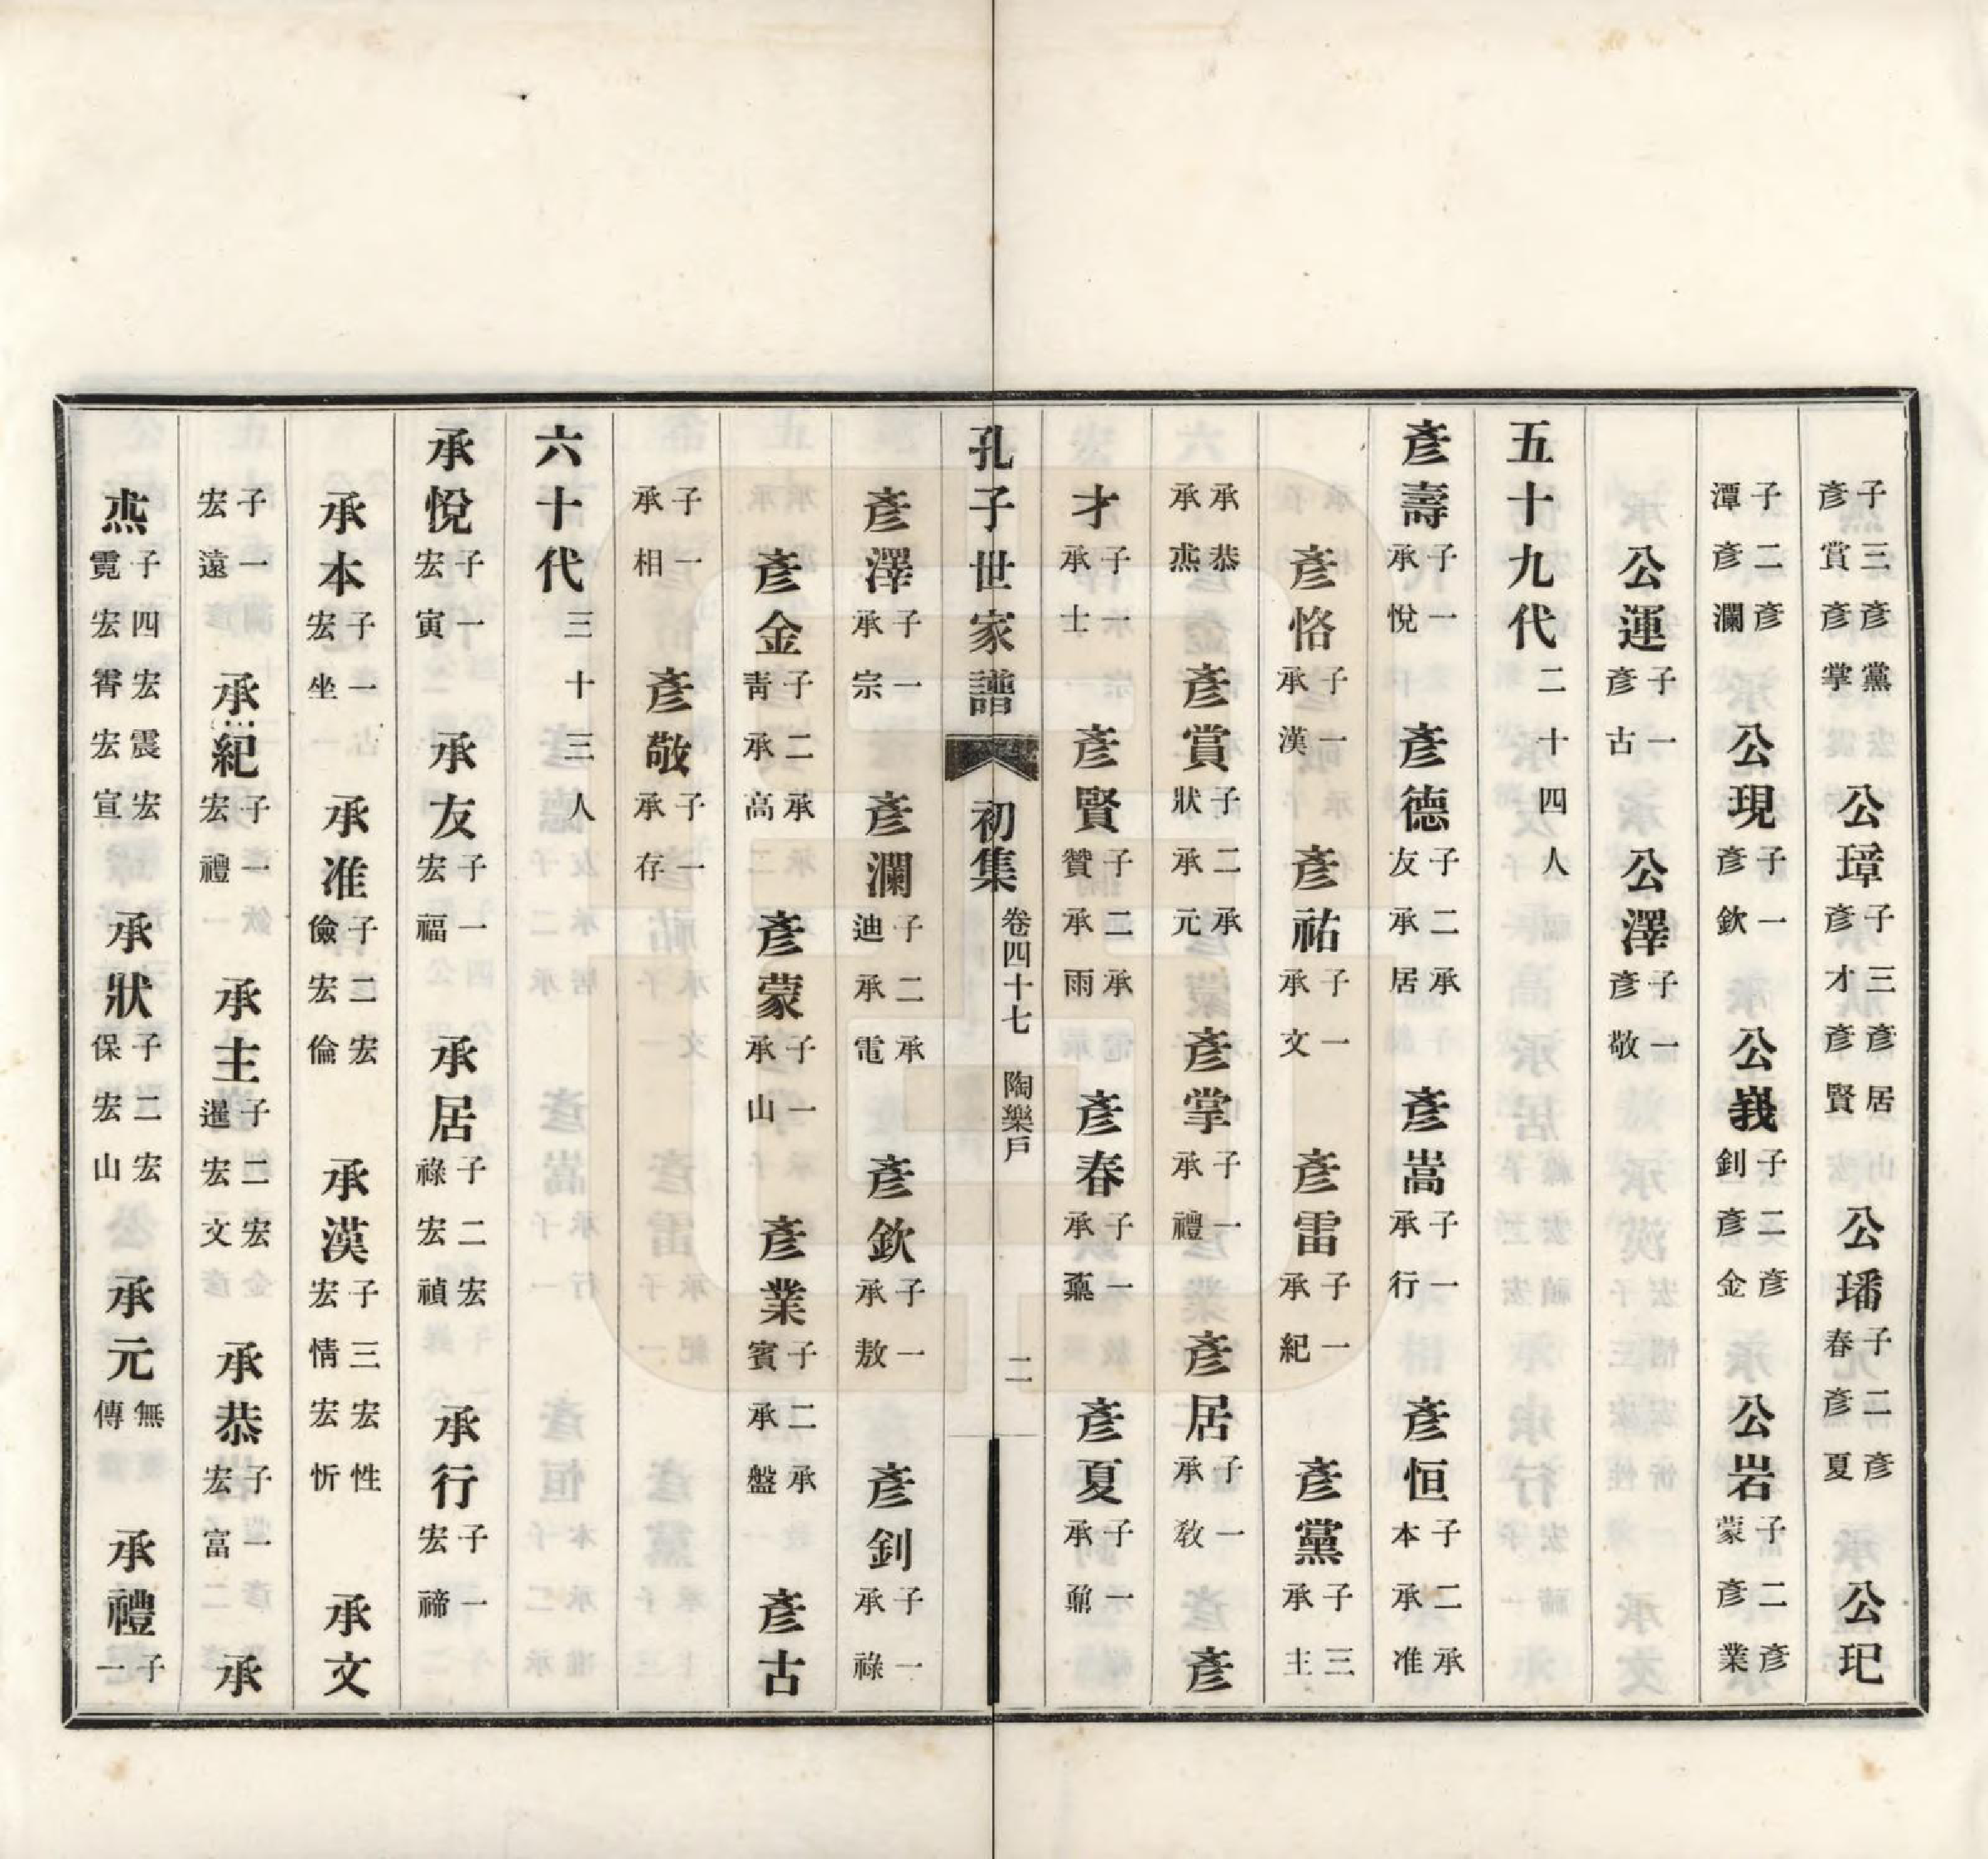 子三彥黨彥賞彥掌　公璋子三彥居彥才彥賢　公璠子二彥春彥夏　公玘
子二彥潭彥瀾　公現子一彥欽　公峩子二彥釗彥金　公岩子二彥蒙彥業
公運子一彥古　公澤子一彥敬
五十九代二十四人
彥壽子一承悅　彥德子二承友承居　彥嵩子一承行　彥恒子二承本承准
彥恪子一承漢　彥祐子一承文　彥雷子一承紀　彥黨子三承主
承恭承𤋮　彥賞子二承狀承元　彥掌子一承禮　彥居子一承敎　彥
才子一承士　彥賢子二承贊承雨　彥春子一承鼐　彥夏子一承鼐
孔子世家譜　初集　卷四十七　陶樂戶　二
彥澤子一承宗　彥瀾子二承迪承電　彥欽子一承敖　彥釗子一承祿
彥金子二承靑承高　彥蒙子一承山　彥業子二承賓承盤　彥古
子一承相　彥敬子一承存
六十代三十三人
承悅子一宏寅　承友子一宏福　承居子二宏祿宏禎　承行子一宏禘
承本子一宏坐　承准子二宏儉宏倫　承漢子三宏性宏情宏忻　承文
子一宏遠　承紀子一宏禮　承主子二宏暹宏文　承恭子一宏富　承
子四宏震宏霓宏霄宏宣　承狀子二宏保宏山　承元無傳　承禮子一